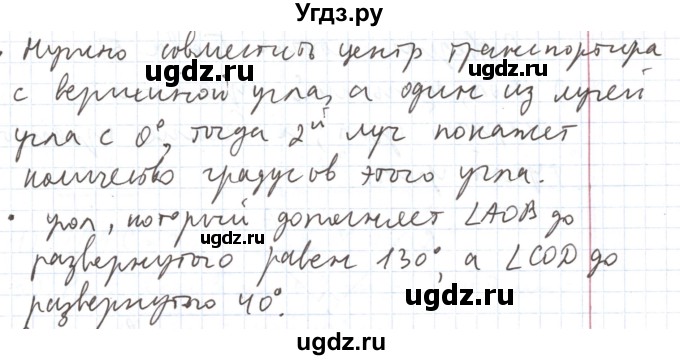 Угдз.ру
• Нужно совместить центр транспортира
ugdz.ru
с вершиной угла, а один из лучей
угла с 0°, тогда 2й луч покажет
количество градусов этого угла.
ugdz.ru
• угол, который дополняет ∠AOB до
ugdz.ru
развернутого равен 130°, а ∠COD до
ugdz.ru
развернутого 40°.
ugdz.ru